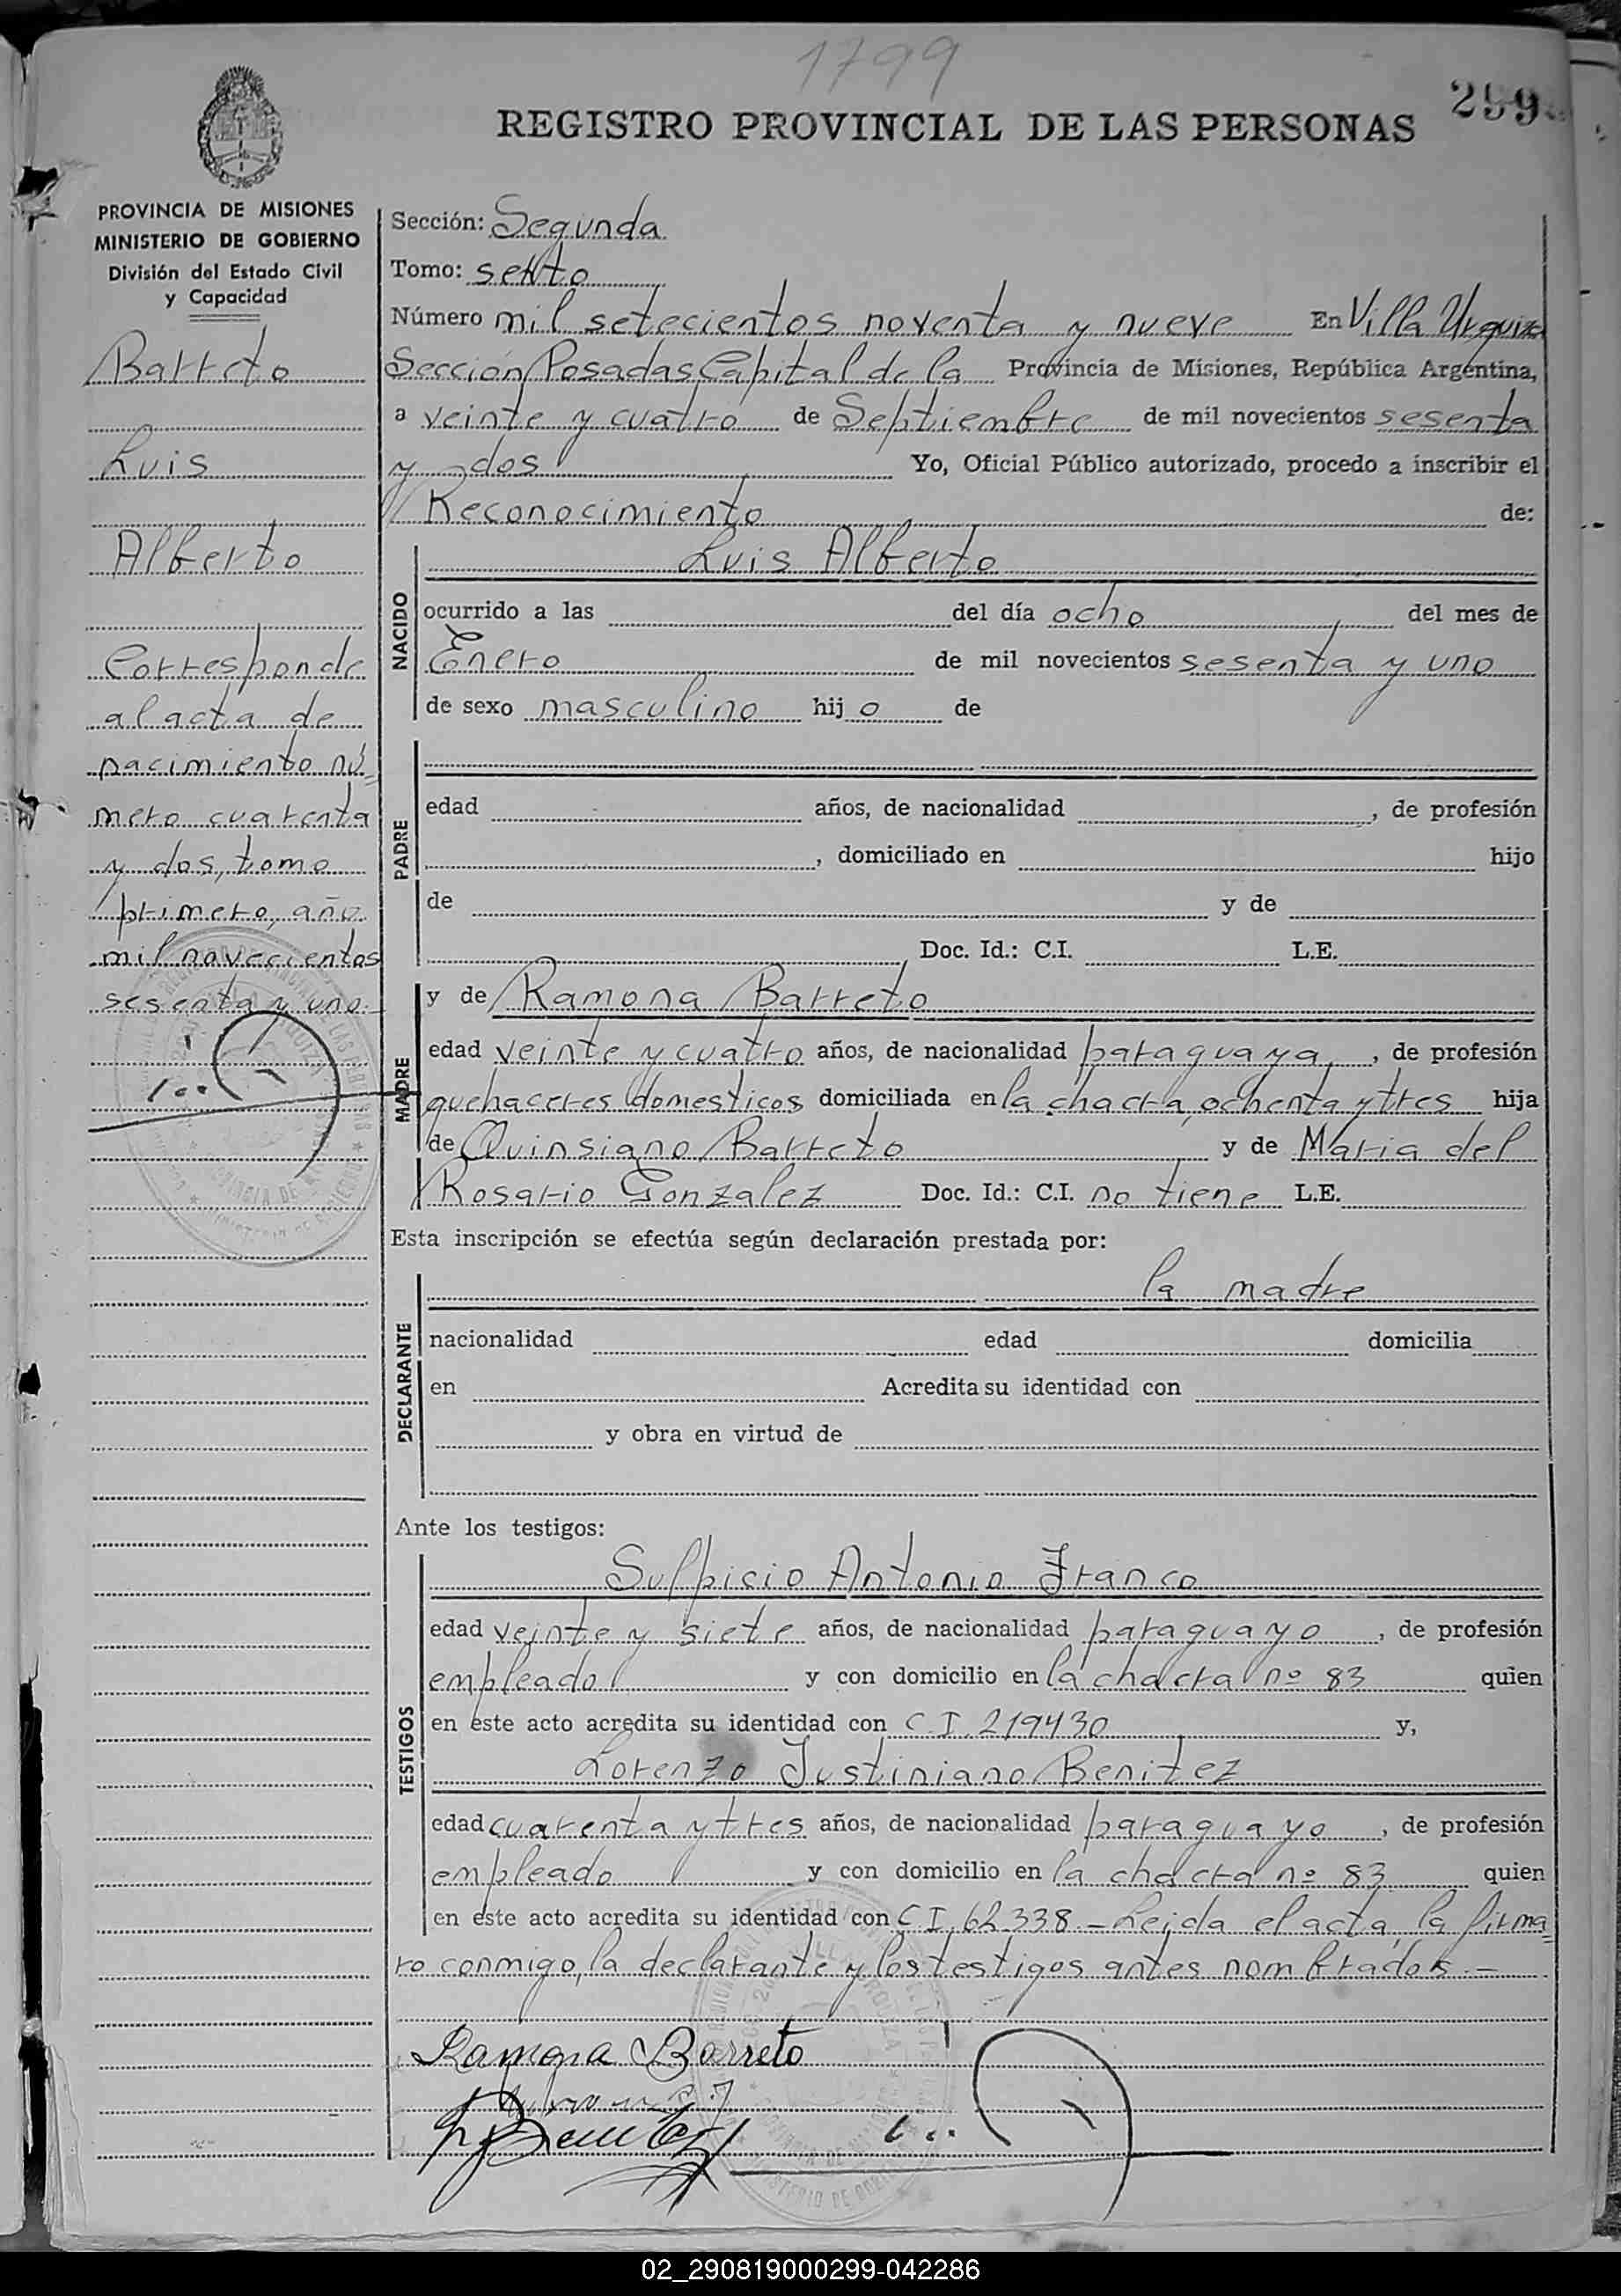 1799
299
REGISTRO PROVINCIAL DE LAS PERSONAS
PROVINCIA DE MISIONES
MINISTERIO DE GOBIERNO
División del Estado Civil
y Capacidad
Barreto
Luis
Alberto
Corresponde
al acta de
nacimiento nú=
mero cuarenta
y dos, tomo
primero, año
mil novecientos
sesenta y uno.-
Sección: Segunda
Tomo: sexto
Número mil setecientos noventa y nueve En Villa Urquiza
Sección Posadas Capital de la Provincia de Misiones, República Argentina,
a veinte y cuatro de Septiembre de mil novecientos sesenta
y dos Yo, Oficial Público autorizado, procedo a inscribir el
Reconocimiento de:
NACIDO
Luis Alberto
ocurrido a las del día ocho del mes de
Enero de mil novecientos sesenta y uno
de sexo masculino hijo de
PADRE
edad años, de nacionalidad , de profesión
, domiciliado en hijo
de y de
Doc. Id.: C.I. L.E.
MADRE
y de Ramona Barreto
edad veinte y cuatro años, de nacionalidad paraguaya, , de profesión
quehaceres domesticos domiciliada en la chacra ochenta y tres hija
de Quinsiano Barreto y de Maria del
Rosario Gonzalez Doc. Id.: C.I. no tiene L.E.
Esta inscripción se efectúa según declaración prestada por:
DECLARANTE
la madre
nacionalidad edad domicilia
en Acredita su identidad con
y obra en virtud de
Ante los testigos:
TESTIGOS
Sulpicio Antonio Franco
edad veinte y siete años, de nacionalidad paraguayo , de profesión
empleado y con domicilio en la chacra nº 83 quien
en este acto acredita su identidad con C.I. 219430 y,
Lorenzo Justiniano Benitez
edad cuarenta y tres años, de nacionalidad paraguayo , de profesión
empleado y con domicilio en la chacra nº 83 quien
en este acto acredita su identidad con C I, 62.338 - Leida el acta, la firma=
ro conmigo, la declarante y los testigos antes nombrados.-
Ramona Barreto
02_290819000299-042286